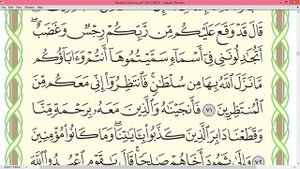 قَالَ قَدْ وَقَعَ عَلَيْكُم مِّن رَّبِّكُمْ رِجْسٌ وَغَضَبٌ
أَتُجَٰدِلُونَنِى فِىٓ أَسْمَآءٍ سَمَّيْتُمُوهَآ أَنتُمْ وَءَابَآؤُكُم
مَّا نَزَّلَ ٱللَّهُ بِهَا مِن سُلْطَٰنٍ فَٱنتَظِرُوٓا۟ إِنِّى مَعَكُم مِّنَ
ٱلْمُنتَظِرِينَ ٧١ فَأَنجَيْنَٰهُ وَٱلَّذِينَ مَعَهُۥ بِرَحْمَةٍ مِّنَّا
وَقَطَعْنَا دَابِرَ ٱلَّذِينَ كَذَّبُوا۟ بِـَٔايَٰتِنَا وَمَا كَانُوا۟ مُؤْمِنِينَ
٧٢ وَإِلَىٰ ثَمُودَ أَخَاهُمْ صَٰلِحًا قَالَ يَٰقَوْمِ ٱعْبُدُوا۟ ٱللَّهَ